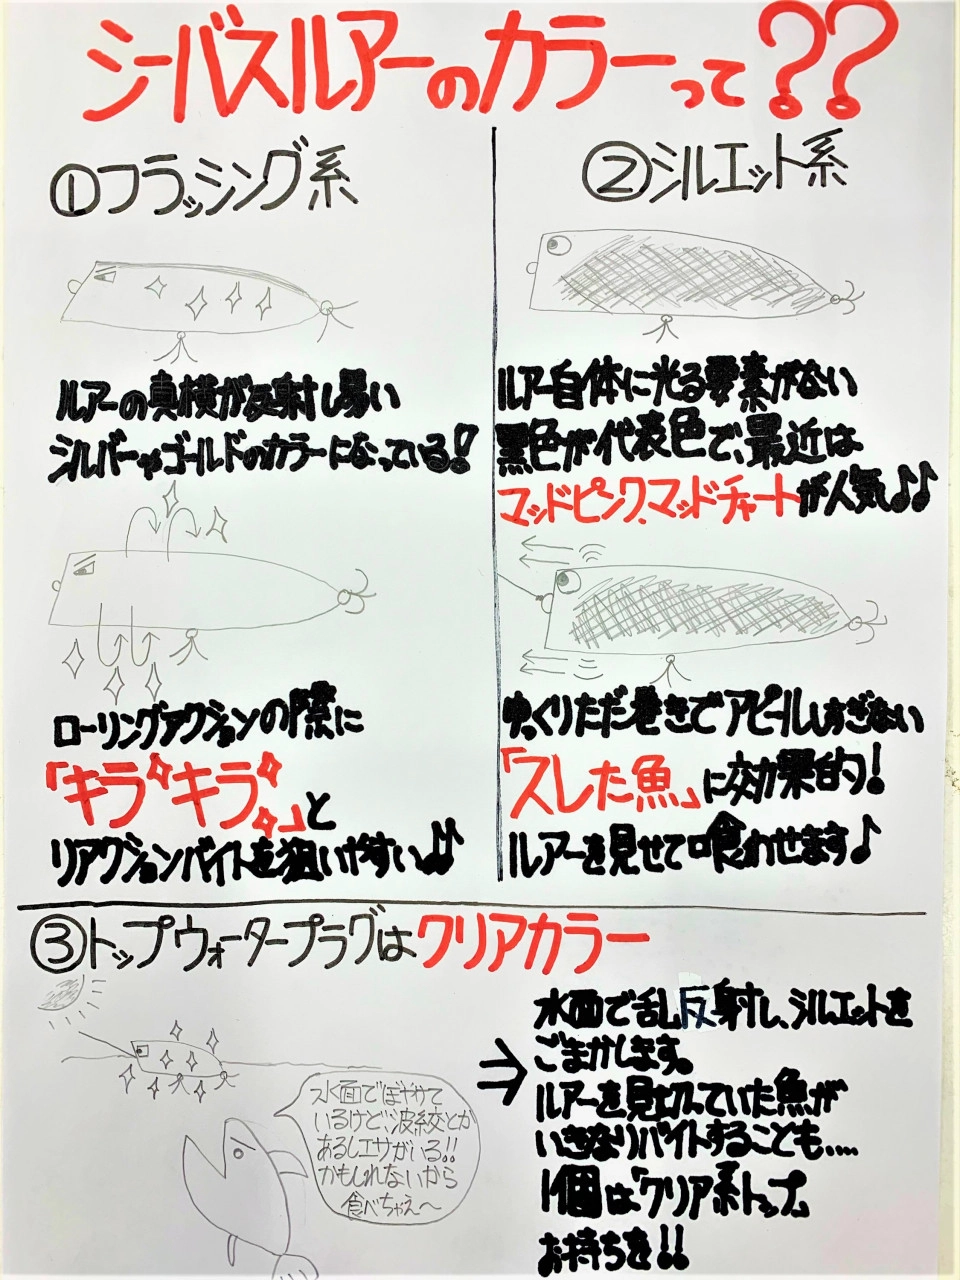 シーバスルアーのカラーって??
①フラッシング系
ルアーの真横が反射し易い
シルバーやゴールドのカラーになっている!
ローリングアクションの際に
「キラキラ」と
リアクションバイトを狙いやすい♪♪
②シルエット系
ルアー自体に光る要素がない
黒色が代表色で、最近は
マッドピンク、マッドチャートが人気♪♪
ゆっくりただ巻きでアピールしすぎない
「スレた魚」に効果的!
ルアーを見せて喰わせます♪
③トップウォータープラグはクリアカラー
水面でぼやけて
いるけど、波紋とか
あるしエサがいる!!
かもしれないから
食べちゃえ〜
⇒
水面で乱反射し、シルエットを
ごまかします。
ルアーを見切っていた魚が
いきなりバイトすることも....
1個は「クリア系トップ」
お持ちを!!